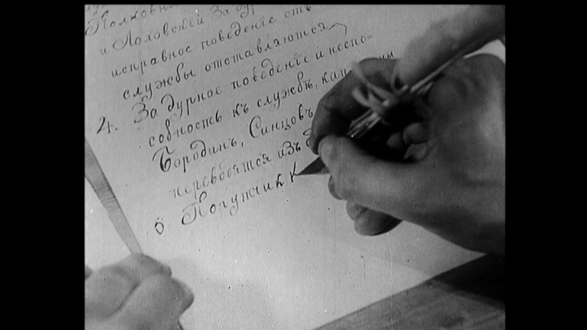 Полковн
и Лоловскій За дур
исправное поведеніе ст
службы отставляются
4. За дурное поведеніе и неспо-
собность къ службѣ, кап
Бородинъ, Синцовъ
переводятся изъ
Порутчик к